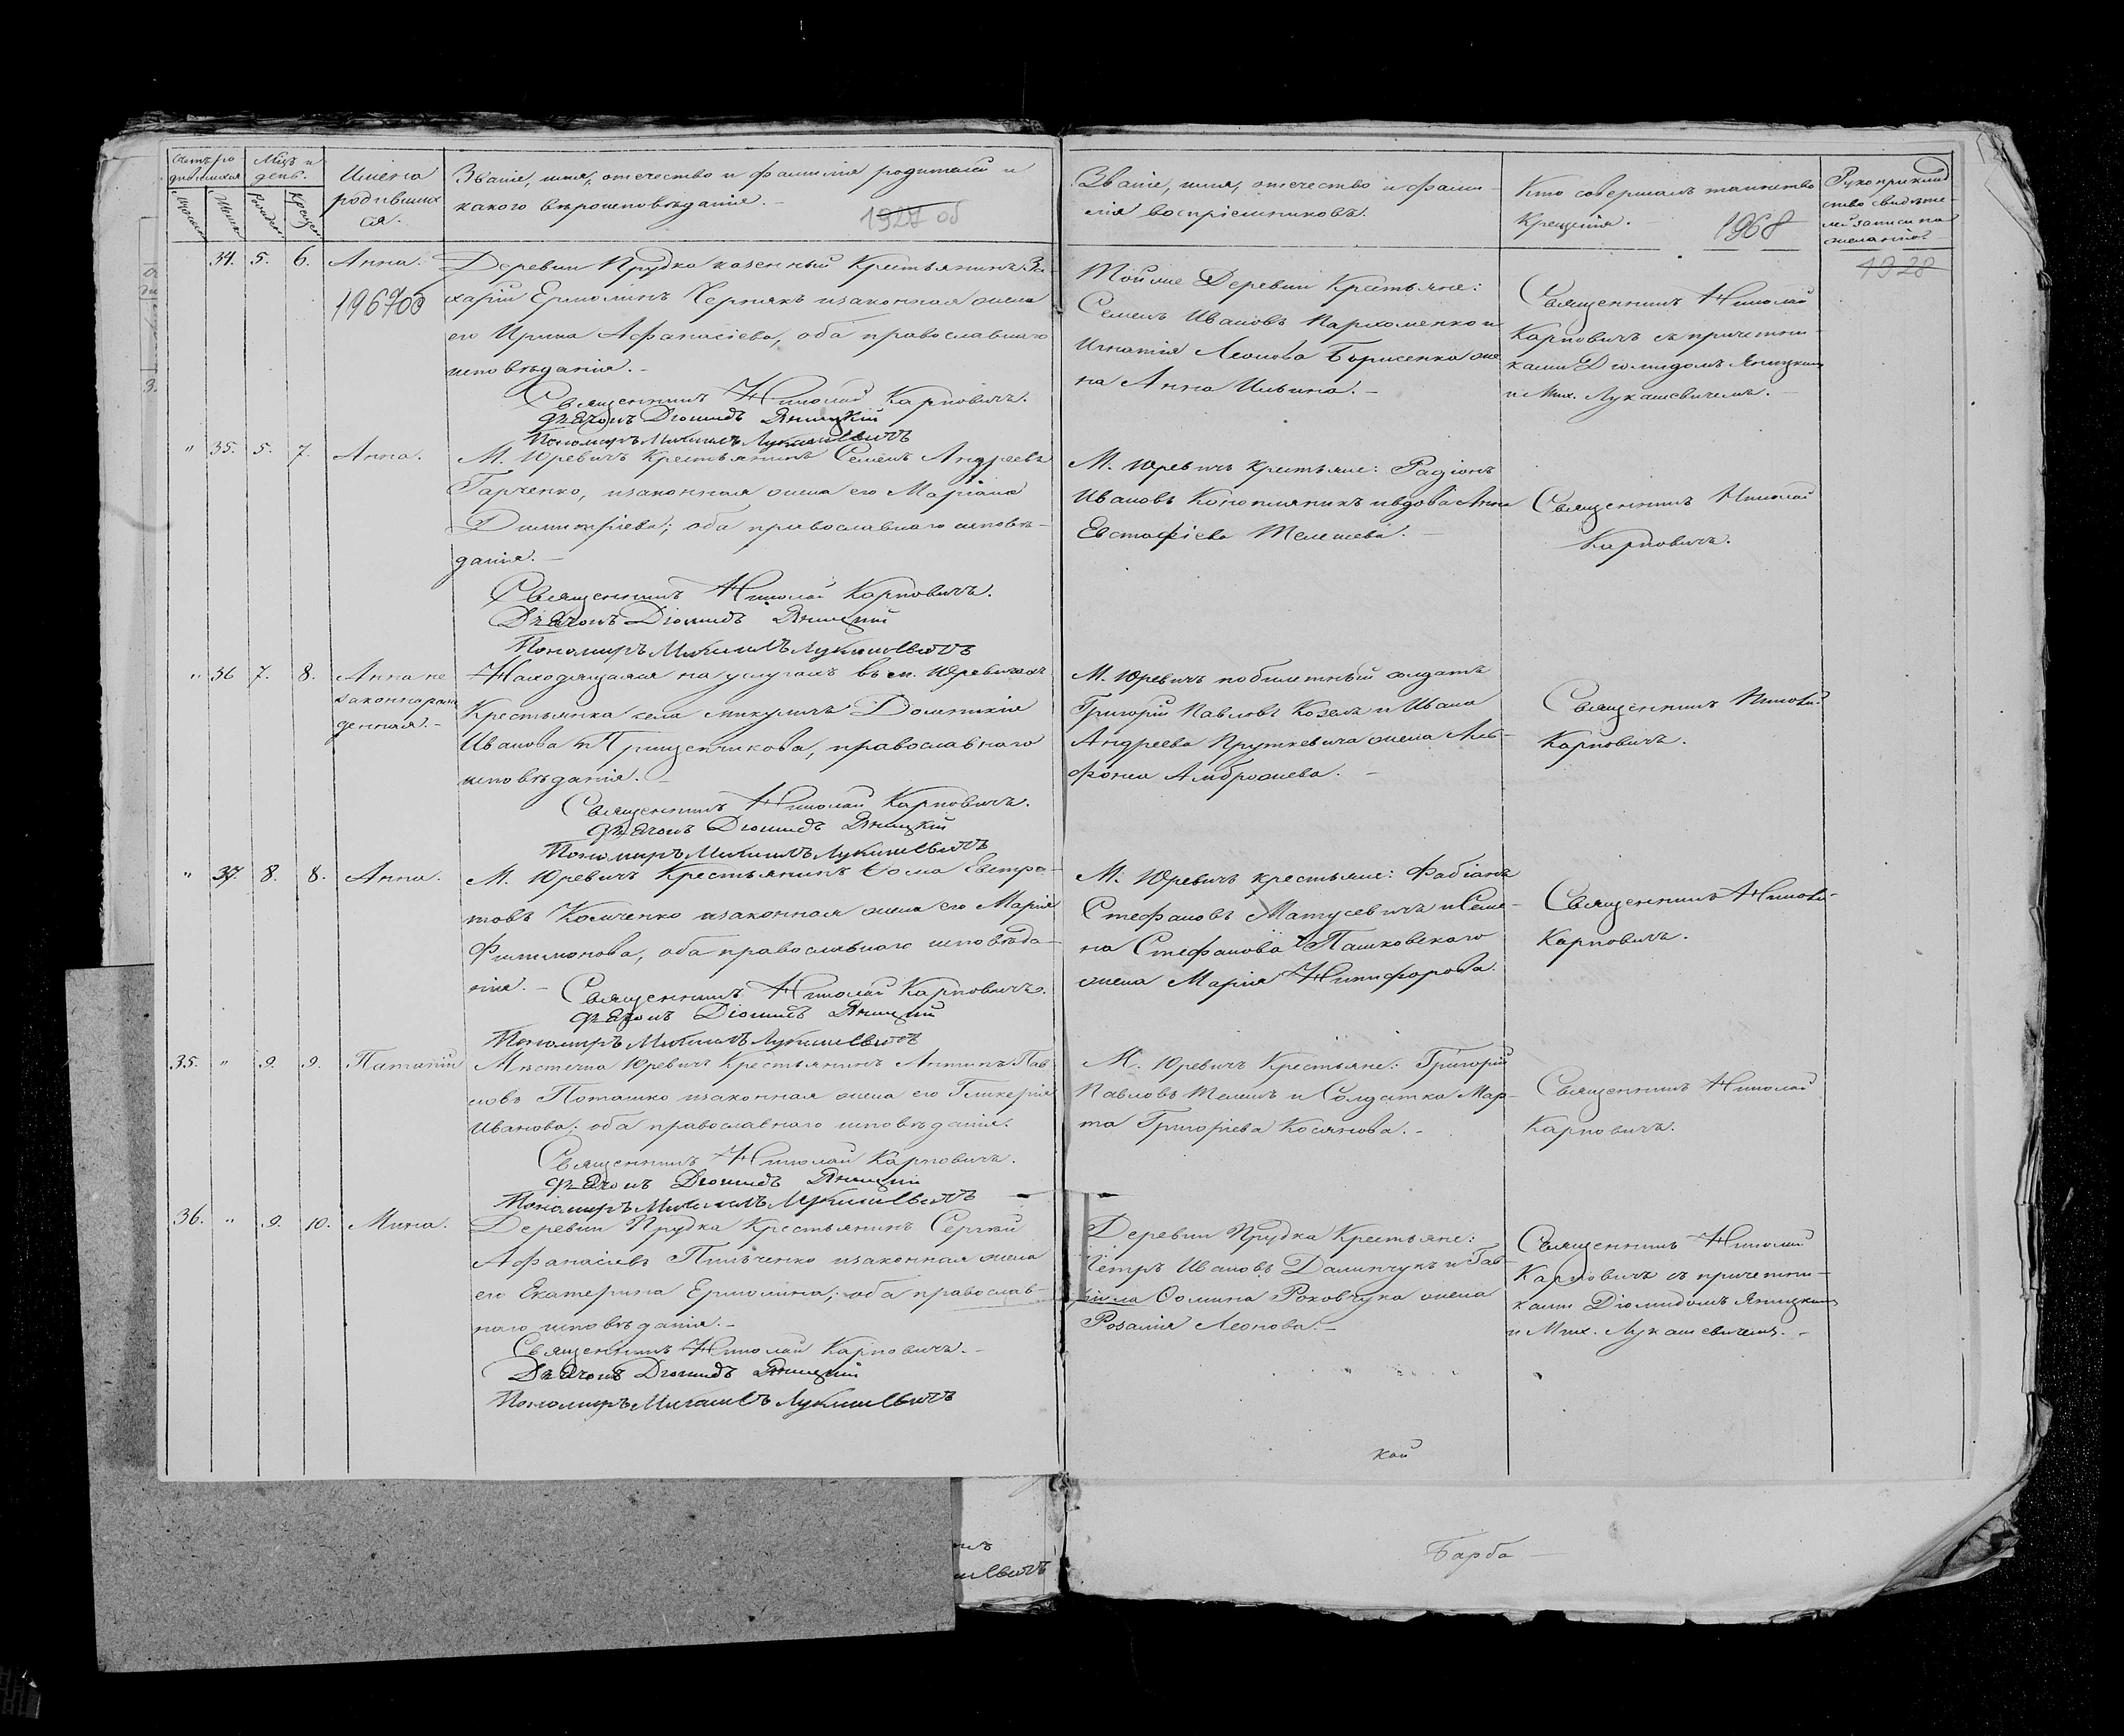 Счетъ ро
дившихся
Мѣсъ и
день.
Имена
родивших
ся.
Званіе, имя, отечество и фамилія родителей и
какого вѣроисповѣданія.
1927 об
Званіе, имя, отечество и фами-
лія воспріемниковъ.
Кто совершалъ таинство
Крещенія.
1968
Рукоприклад
ство свидѣте-
лей записи по
желанію.
1928
34. 5. 6. Анна.
1967об
Деревни Прудка казенный Крестьянинъ За-
харій Ермолинъ Чернякъ изаконная жена
его Ирина Афанасіева, оба православнаго
исповѣданія.
Священникъ Николай Карповичъ.
Дьячокъ Діомидъ Яницкій
Пономарь Михаилъ Лукашевичъ
Тойже Деревни Крестьяне:
Семенъ Ивановъ Пархоменко и
Игнатія Леонова Борисенка же
на Анна Ильина.
Священникъ Николай
Карповичъ съ причетни-
ками Діомидомъ Яницкимъ
и Мих. Лукашевичемъ.
" 35. 5. 7. Анна.
М. Юревичъ Крестьянинъ Семенъ Андреевъ
Гарченко, изаконная жена его Маріана
Димитріева; оба православнаго исповѣ-
данія.
Священникъ Николай Карповичъ.
Дьячокъ Діомидъ Яницкій
Пономарь Михаилъ Лукашевичъ
М. Юревичъ крестьяне: Радіонъ
Ивановъ Конопляникъ ивдова Анна
Евстафіева Телешева.
Священникъ Николай
Карповичъ.
" 36 7. 8. Анна не
законнорож
денная.
Находящаяся на услугахъ въ м. Юревичахъ
Крестьянка села Микуличъ Доминикія
Иванова Грищенчикова, православнаго
исповѣданія.
Священникъ Николай Карповичъ.
Дьячокъ Діомидъ Яницкій
Пономарь Михаилъ Лукашевичъ
М. Юревичъ побилетный солдатъ
Григорій Павловъ Козелъ и Ивана
Андреева Пруткевича жена Аль-
фонса Амброжева.
Священникъ Николай
Карповичъ.
" 37. 8. 8. Анна.
М. Юревичъ Крестьянинъ Ѳома Евстра-
товъ Комченко изаконная жена его Марія
Филимонова, оба православнаго исповѣда-
нія.
Священникъ Николай Карповичъ.
Дьячокъ Діомидъ Яницкій
Пономарь Михаилъ Лукашевичъ
М. Юревичъ крестьяне: Фабіанъ
Стефановъ Матусевичъ и Семе-
на Стефанова Пашковскаго
жена Марія Никифорова.
Священникъ Николай
Карповичъ.
35. " 9. 9. Патапій
Мѣстечка Юревичъ Крестьянинъ Антипъ Пав-
ловъ Поташко изаконная жена его Гликерія
Иванова: оба православнаго исповѣданія.
Священникъ Николай Карповичъ.
Дьячокъ Діомидъ Яницкій
Пономарь Михаилъ Лукашевичъ
М. Юревичъ Крестьяне: Григорій
Павловъ Телешъ и Солдатка Мар-
та Григоріева Косякова.
Священникъ Николай
Карповичъ.
36. " 9. 10. Мина.
Деревни Прудка Крестьянинъ Сергѣй
Афанасіевъ Пильченко изаконная жена
его Екатерина Ермолина; оба православ-
наго исповѣданія.
Священникъ Николай Карповичъ.
Дьячокъ Діомидъ Яницкій
Пономарь Михаилъ Лукашевичъ
Деревни Прудка Крестьяне:
Петръ Ивановъ Далинчукъ и Гав-
ріила Ѳомина Роковчука жена
Розалія Леонова.
Священникъ Николай
Карповичъ съ причетни-
ками Діомидомъ Яницкимъ
и Мих. Лукашевичемъ.
кой
Барба